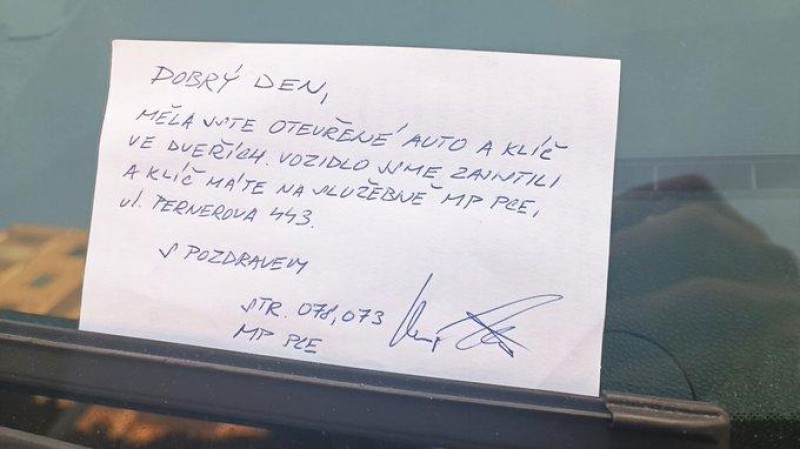 DOBRÝ DEN,
MĚLA JSTE OTEVŘENÉ AUTO A KLÍČ
VE DVEŘÍCH. VOZIDLO JSME ZAJISTILI
A KLÍČ MÁTE NA SLUŽEBNĚ MP PCE,
ul. PERNEROVA 443.
S POZDRAVEM
STR. 078,073
MP PCE